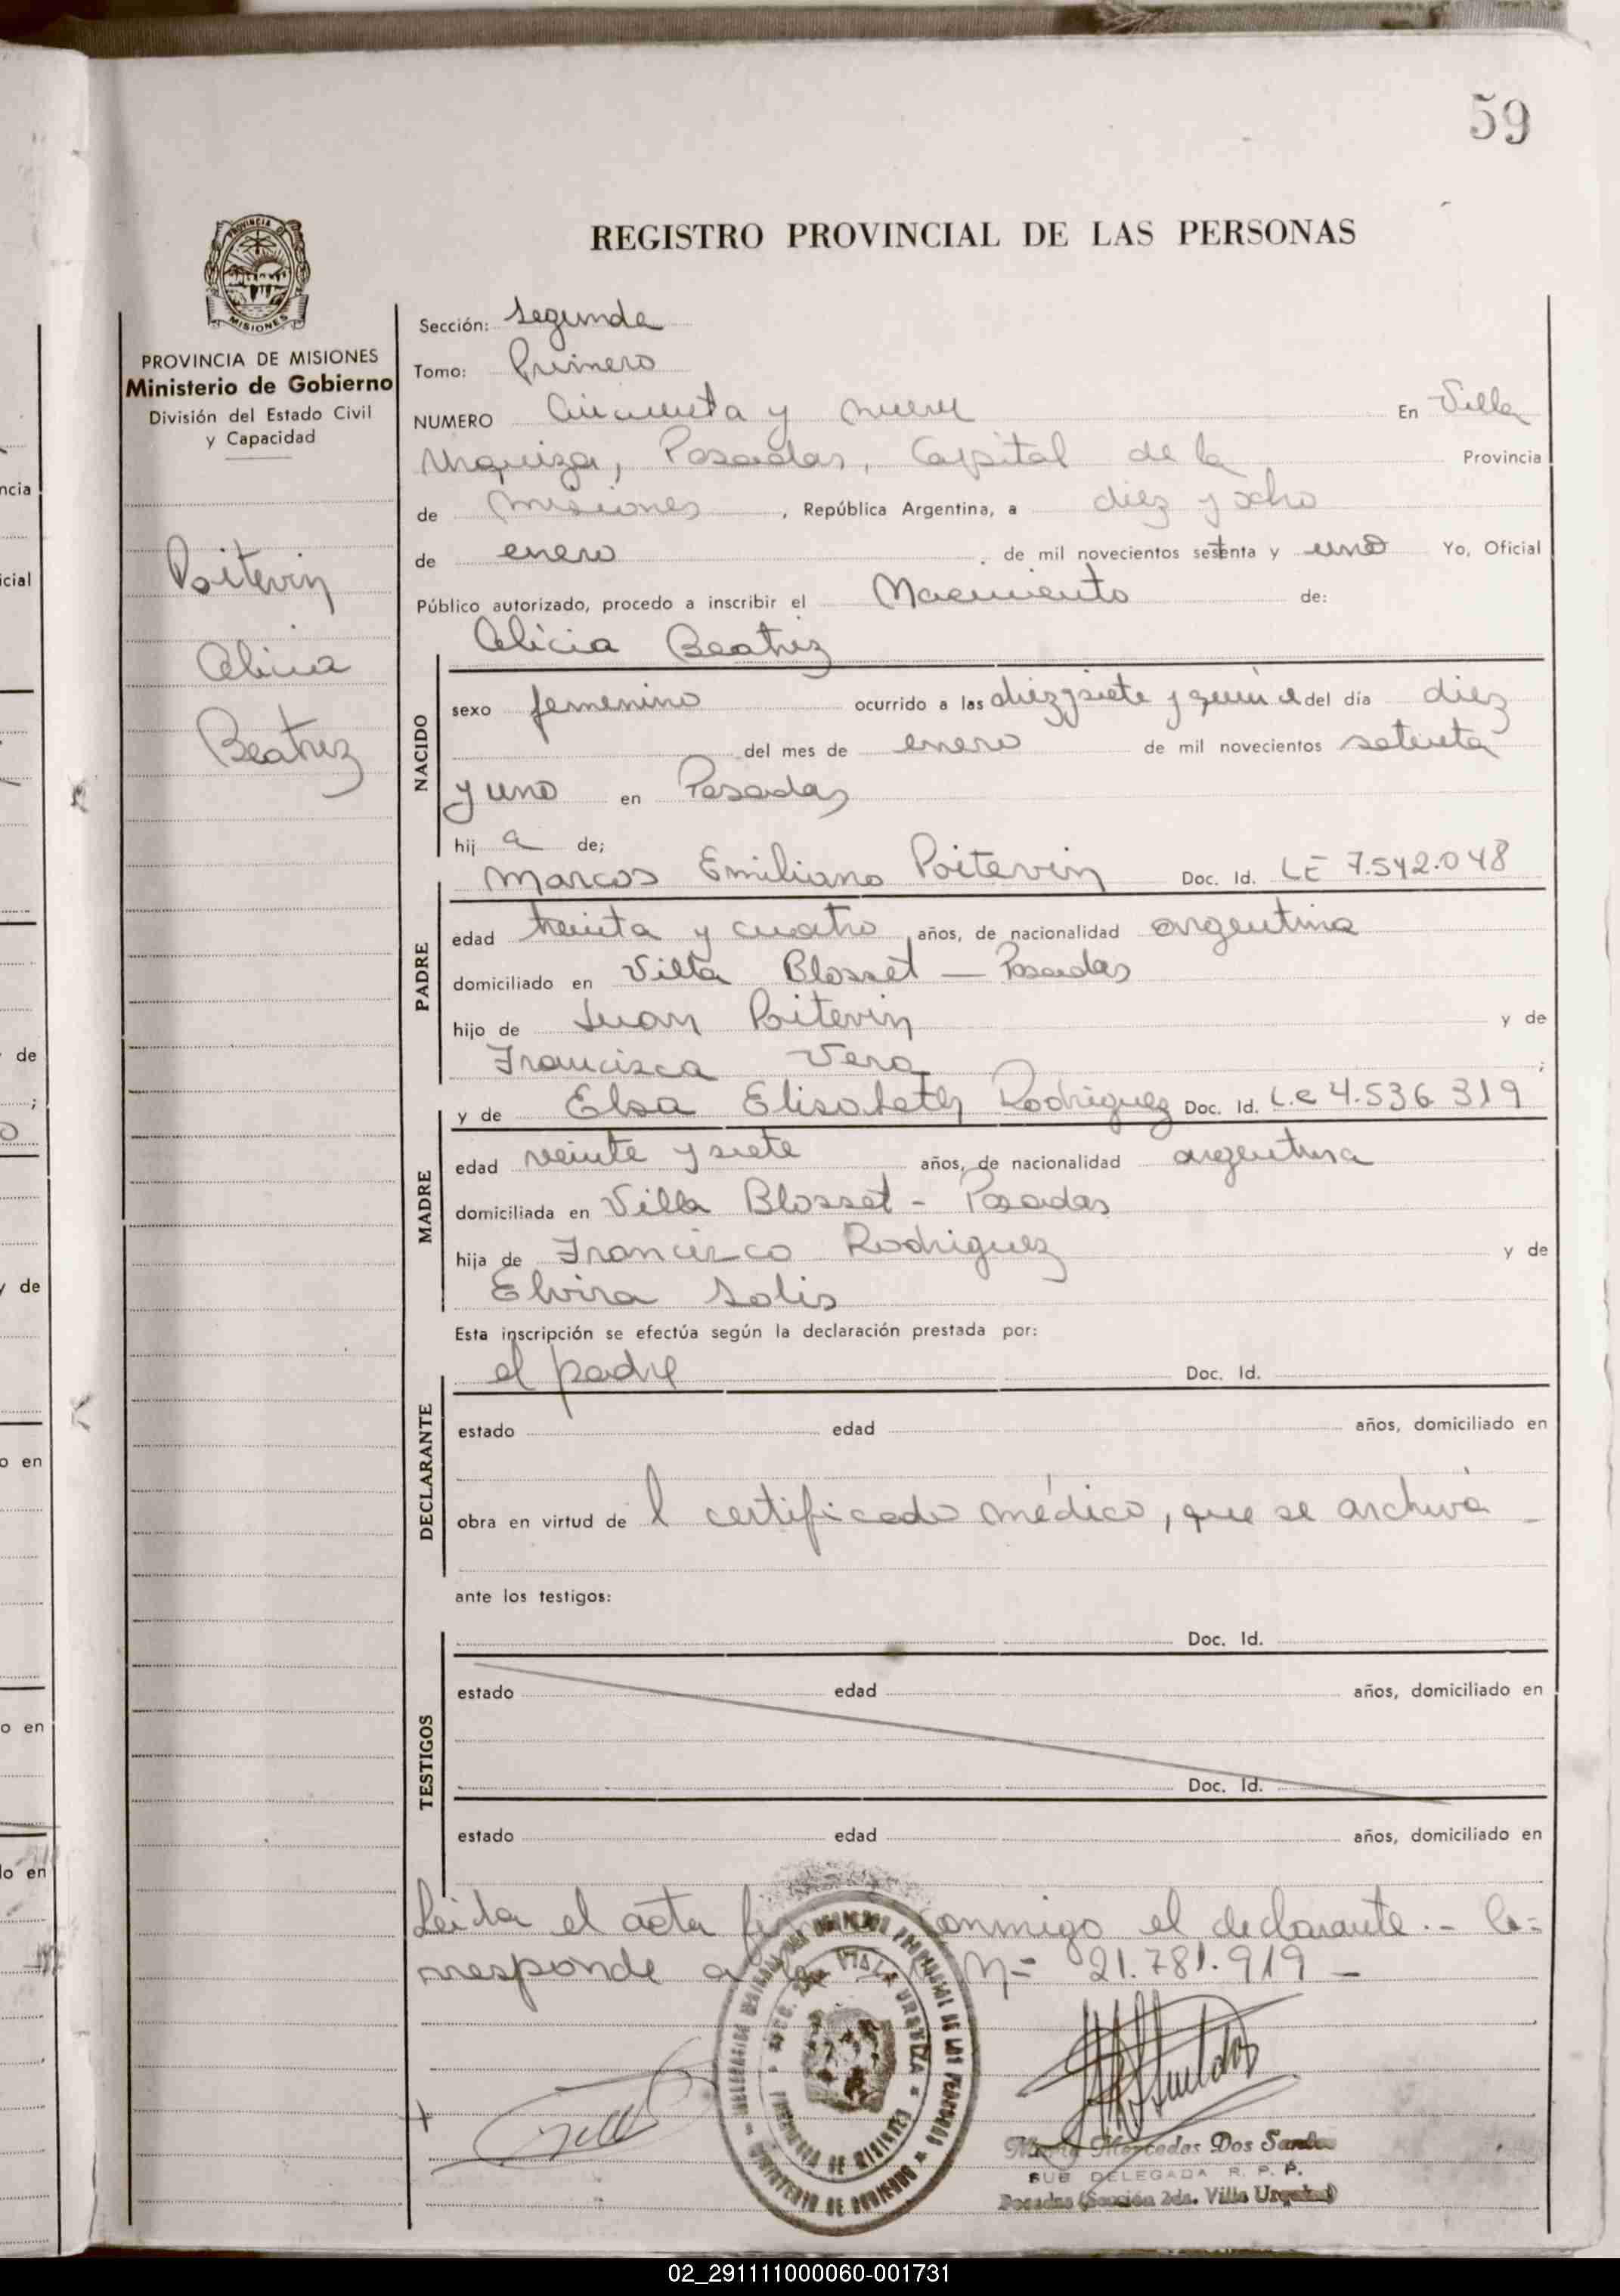 59
PROVINCIA DE
MISIONES
REGISTRO PROVINCIAL DE LAS PERSONAS
PROVINCIA DE MISIONES
Ministerio de Gobierno
División del Estado Civil
y Capacidad
Poitevin
Alicia
Beatriz
Sección: Segunda
Tomo: Primero
NUMERO Cincuenta y nueve En Villa
Urquiza, Posadas, Capital de la Provincia
de Misiones, República Argentina, a diez y ocho
de enero de mil novecientos setenta y uno Yo, Oficial
Público autorizado, procedo a inscribir el Nacimiento de:
Alicia Beatriz
NACIDO
sexo femenino ocurrido a las diez y siete y quince del día diez
del mes de enero de mil novecientos setenta
y uno en Posadas
hij a de;
Marcos Emiliano Poitevin Doc. Id. LE 7.542.048
PADRE
edad treinta y cuatro años, de nacionalidad argentina
domiciliado en Villa Blosset — Posadas
hijo de Juan Poitevin y de
Francisca Vera ;
y de Elsa Elisabeth Rodriguez Doc. Id. L.C 4.536.319
MADRE
edad veinte y siete años, de nacionalidad argentina
domiciliada en Villa Blosset - Posadas
hija de Francisco Rodriguez y de
Elvira Solis
Esta inscripción se efectúa según la declaración prestada por:
el padre Doc. Id.
DECLARANTE
estado edad años, domiciliado en
obra en virtud de l certificado médico, que se archiva -
ante los testigos:
Doc. Id.
TESTIGOS
estado edad años, domiciliado en
Doc. Id.
estado edad años, domiciliado en
Leida el acta conmigo el declarante.- Co=
rresponde a Nº 21.781.919 -
Mercedes Dos Santos
SUB DELEGADA R. P. P.
Posadas (Sección 2da. Villa Urquiza)
ncia
icial
de
;
y de
o en
o en
lo en
02_291111000060-001731